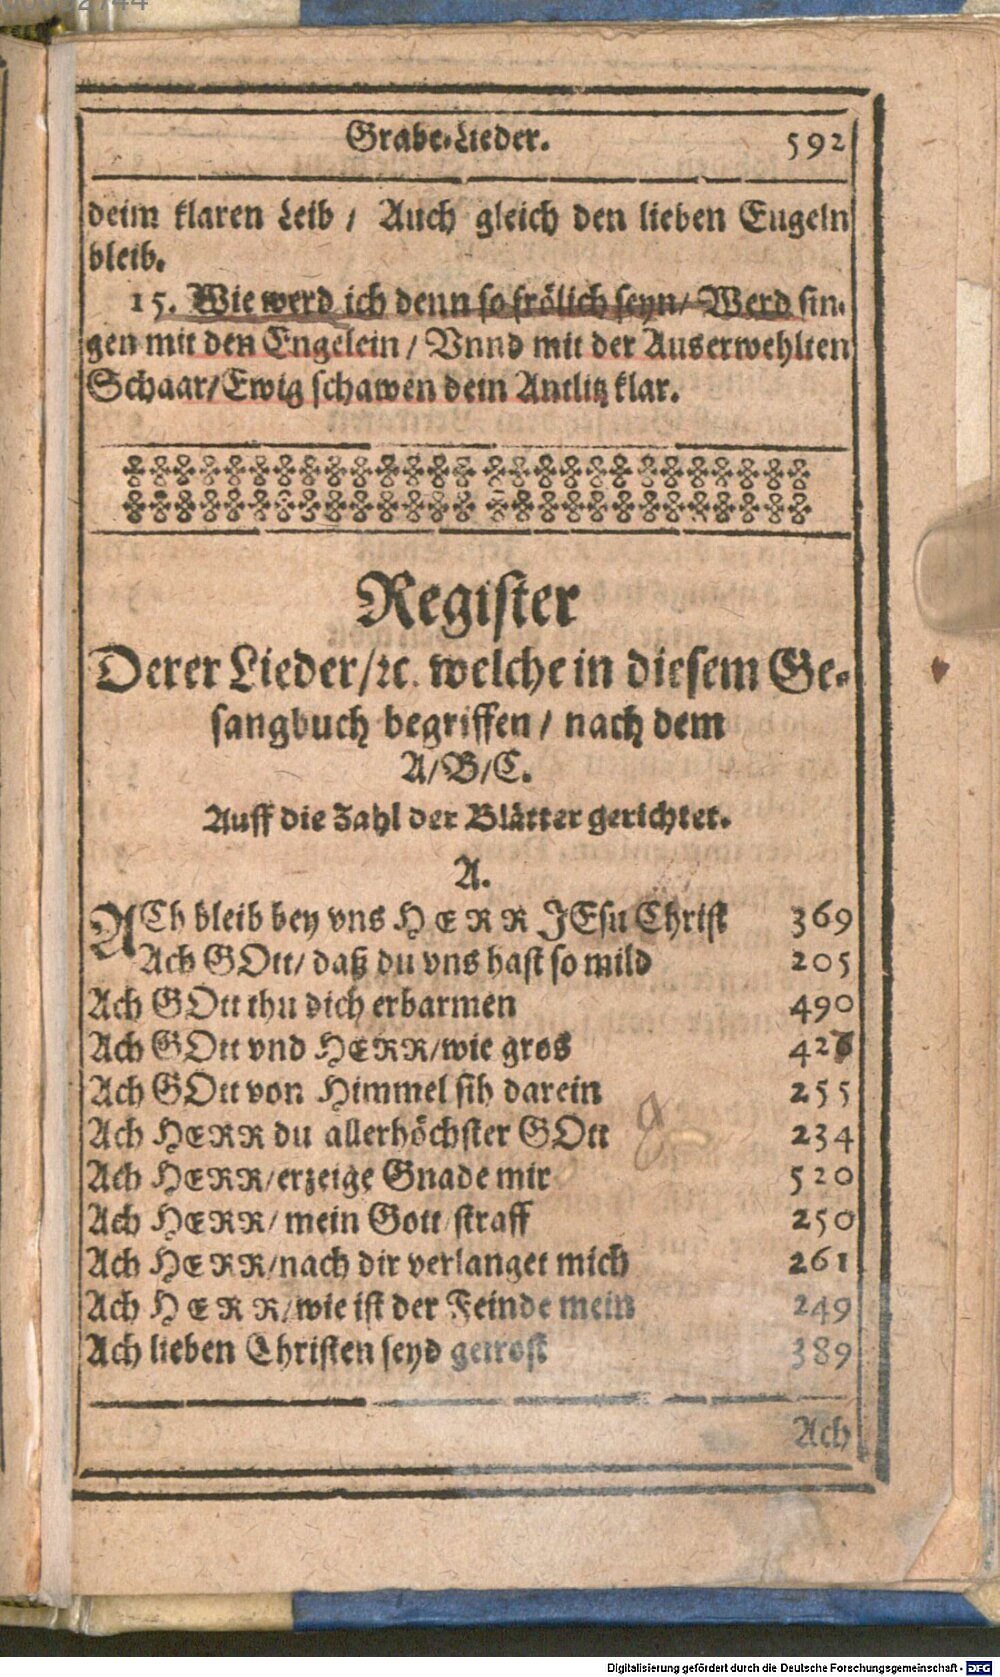 Grabe-Lieder. 592
deim klaren Leib / Auch gleich den lieben Engeln
bleib.
15. Wie werd ich denn so frölich seyn/ Werd sin-
gen mit den Engelein / Vnnd mit der Auserwehlten
Schaar/ Ewig schawen dein Antlitz klar.
Register
Derer Lieder/ ꝛc. welche in diesem Ge-
sangbuch begriffen / nach dem
A/ B/ C.
Auff die Zahl der Blätter gerichtet.
A.
ACh bleib bey vns HERR JEsu Christ 369
Ach GOtt/ daß du vns hast so mild 205
Ach GOtt thu dich erbarmen 490
Ach GOtt vnd HERR/ wie gros 426
Ach GOtt von Himmel sih darein 255
Ach HERR du allerhöchster GOtt 234
Ach HERR/ erzeige Gnade mir 520
Ach HERR/ mein Gott/ straff 250
Ach HERR/ nach dir verlanget mich 261
Ach HERR/ wie ist der Feinde mein 249
Ach lieben Christen seyd getrost 389
Ach
Digitalisierung gefördert durch die Deutsche Forschungsgemeinschaft - DFG